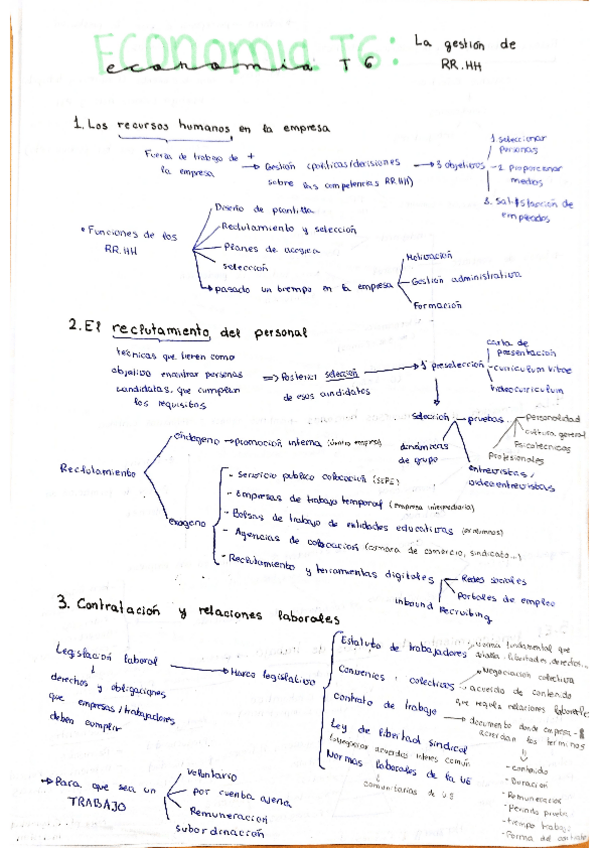 ECONOMIA T6:
economia T 6
La gestión de
RR.HH
1. Los recursos humanos en la empresa
Fuerza de trabajo de
la empresa
+
Gestión (políticas/decisiones
sobre las competencias RR.HH)
3 objetivos
1. seleccionar
personas
2. Proporcionar
medios
3. Satisfacción de
empleados
• Funciones de los
RR.HH
Diseño de plantilla
Reclutamiento y selección
Planes de acogida
selección
pasado un tiempo en la empresa
Motivación
Gestión administrativa
Formación
2. El reclutamiento del personal
técnicas que tienen como
objetivo encontrar personas
candidatas, que cumplan
los requisitos
=> Posterior selección
de esos candidatos
1º preselección
carta de
presentación
curriculum vitae
videocurriculum
selección
pruebas
personalidad
cultura general
Psicotécnicos
Profesionales
dinámicas
de grupo
entrevistas /
videoentrevistas
Reclutamiento
endógeno → promoción interna (dentro empresa)
exogeno
- Servicio publico colocación (SEPE)
- Empresas de trabajo temporal (empresa intermediaria)
- Bolsas de trabajo de entidades educativas (exalumnos)
- Agencias de colocación (camara de comercio, sindicato...)
- Reclutamiento y herramientas digitales
Redes sociales
Portales de empleo
inbound Recruiting
3. Contratación y relaciones laborales
Legislación laboral
derechos y obligaciones
que empresas/trabajadores
deben cumplir
Marco legislativo
Estatuto de trabajadores
Norma fundamental que
libertades, derechos...
Convenios colectivos
Negociación colectiva
acuerdo de contenido
que regula relaciones laborales
Contrato de trabajo
documento donde empresa -
acuerdan los términos
Ley de libertad sindical
acuerdos interes común
Normas laborales de la UE
comunitarias de UE
- Contenido
- Duración
- Remuneración
- Periodo prueba
- tiempo trabajo
- Forma del contrato
→ Para que sea un
TRABAJO
Voluntario
por cuenta ajena
Remuneración
subordinación